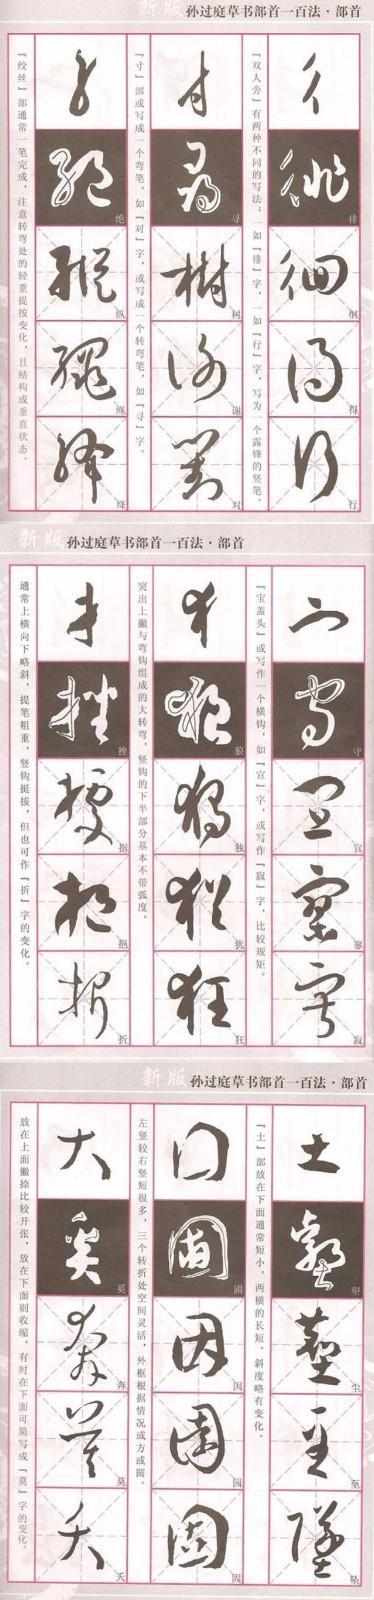 新版 孙过庭草书部首一百法·部首
『双人旁』有两种不同的写法：一如『徘』字，一如『行』字，写为一个露锋的竖笔。
徘
徊
得
行
『寸』部或写成一个弯笔，如『对』字，或写成一个转弯笔，如『寻』字。
寻
树
谢
对
『绞丝』部通常一笔完成，注意转弯处的轻重提按变化，且结构成垂直状态。
绝
纵
绳
绛
新版 孙过庭草书部首一百法·部首
『宝盖头』或写作一个横钩，如『宣』字，或写作『寂』字，比较规矩。
守
宣
寂
突出上撇与弯钩组成的大转弯，竖钩的下半部分基本不带弧度。
狼
独
犹
狂
通常上横向下略斜，提笔粗重，竖钩挺拔，但也可作『折』字的变化。
挫
据
挹
折
新版 孙过庭草书部首一百法·部首
『土』部放在下面通常短小，两横的长短、斜度略有变化。
土
壑
尘
至
坠
左竖较右竖短很多，三个转折处空间灵活，外框根据情况或方或圆。
圃
因
园
固
放在上面撇捺比较开张，放在下面则收缩，有时在下面可简写成『莫』字的变化。
大
奚
奔
莫
夭